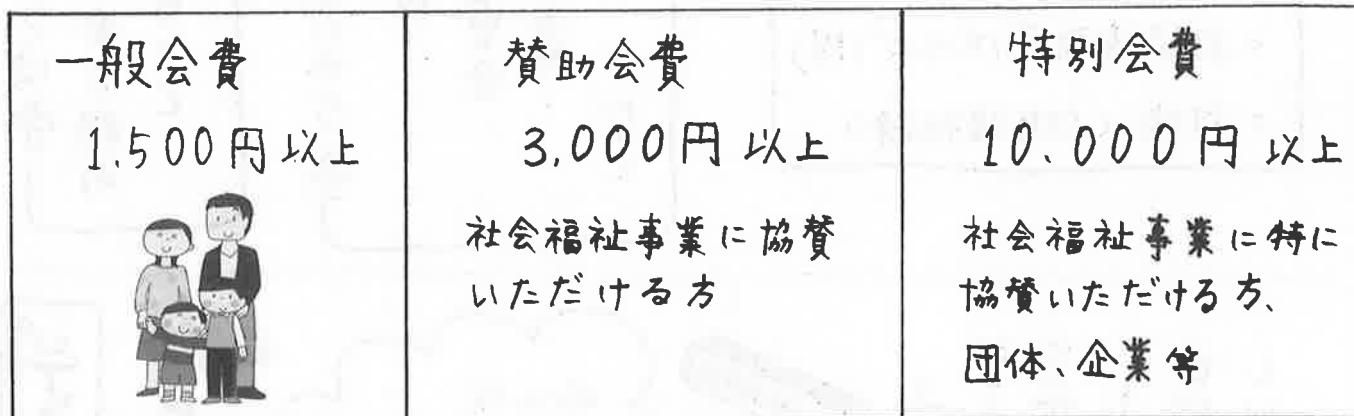 一般会費
1,500円以上
賛助会費
3,000円以上
社会福祉事業に協賛
いただける方
特別会費
10,000円以上
社会福祉事業に特に
協賛いただける方、
団体、企業等